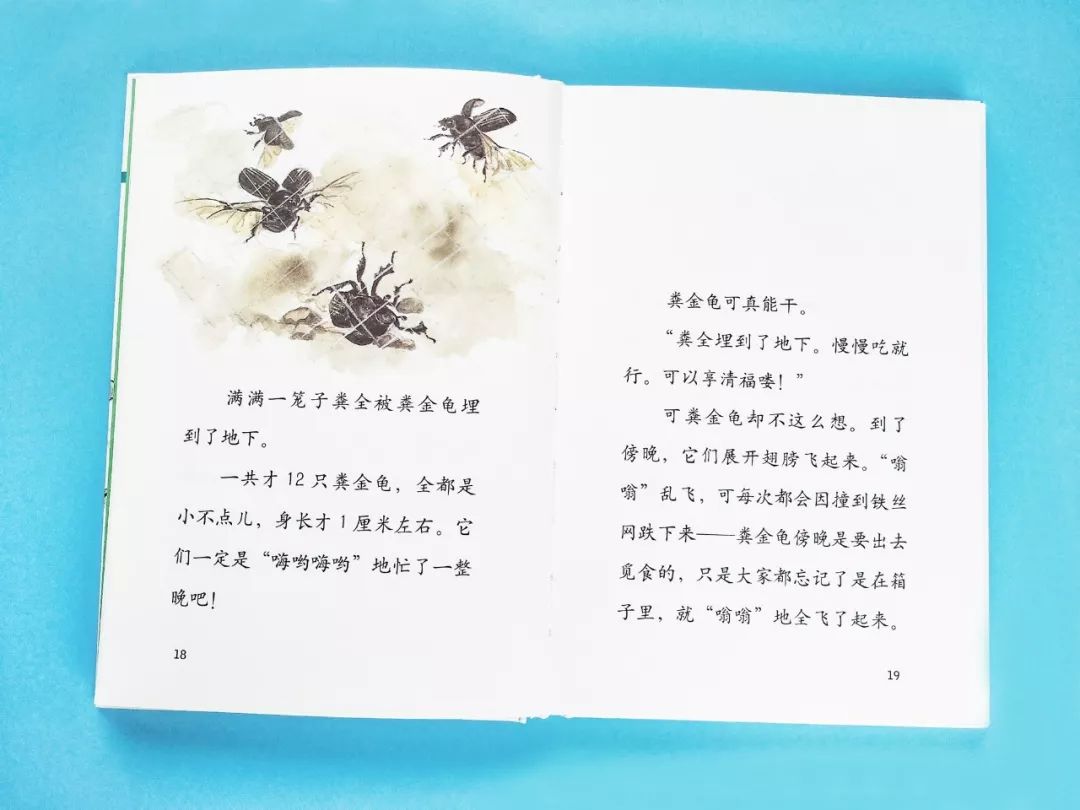 满满一笼子粪全被粪金龟埋
到了地下。
一共才12只粪金龟，全都是
小不点儿，身长才1厘米左右。它
们一定是“嗨哟嗨哟”地忙了一整
晚吧！
18
粪金龟可真能干。
“粪全埋到了地下。慢慢吃就
行。可以享清福喽！”
可粪金龟却不这么想。到了
傍晚，它们展开翅膀飞起来。“嗡
嗡”乱飞，可每次都会因撞到铁丝
网跌下来——粪金龟傍晚是要出去
觅食的，只是大家都忘记了是在箱
子里，就“嗡嗡”地全飞了起来。
19